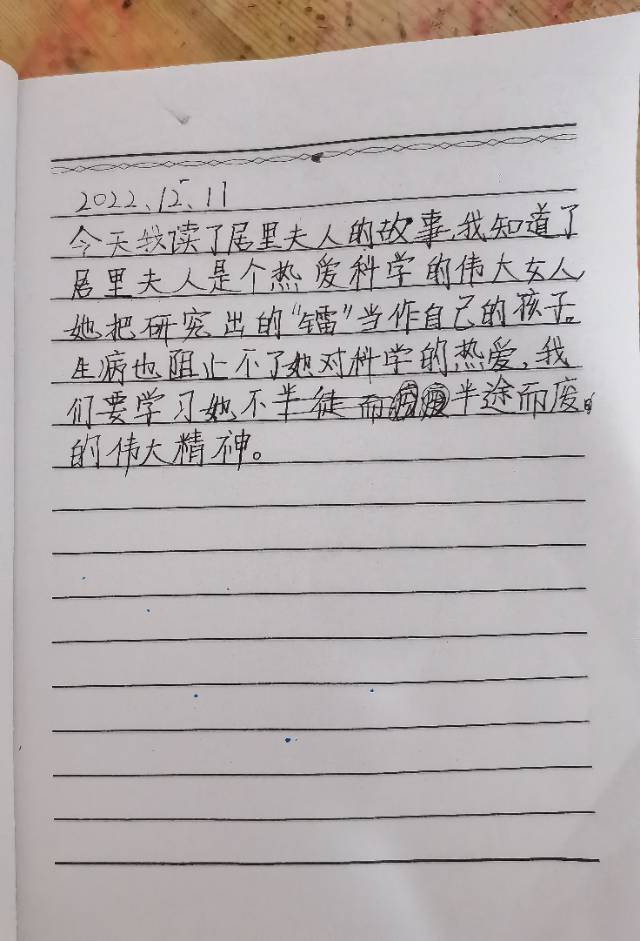 2022、12、11
今天我读了居里夫人的故事,我知道了
居里夫人是个热爱科学的伟大女人,
她把研究出的“镭”当作自己的孩子。
生病也阻止不了她对科学的热爱,我
们要学习她不半徒而半途而废。
的伟大精神。